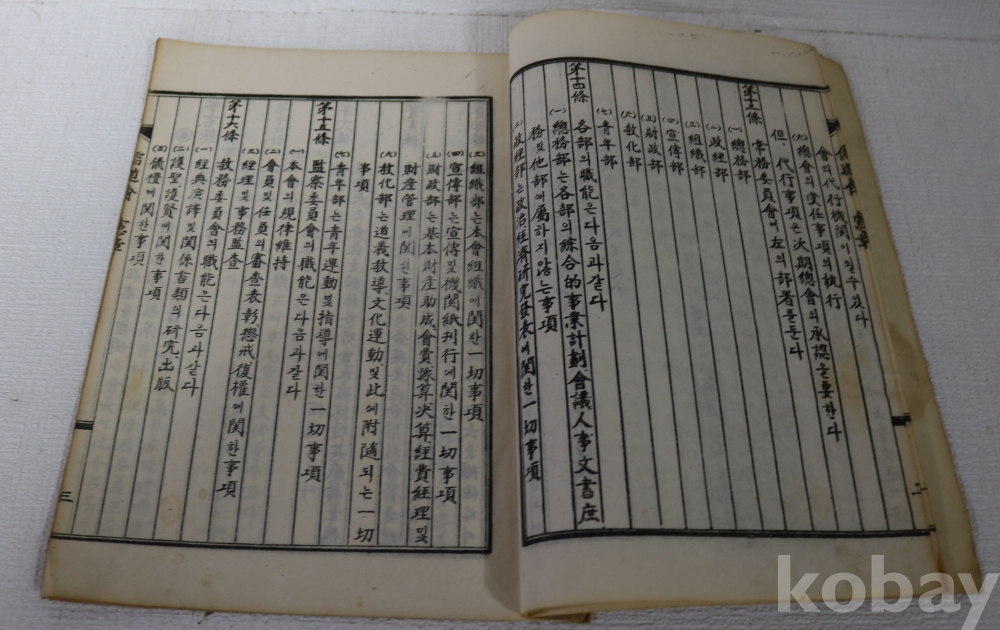 儒道會 憲章
會의代行機関이될수있다
(六) 總會의委任事項의執行
但、代行事項은次期總會의承認을要한다
第十三條 常務委員會에左의部署를둔다
(一) 總務部
(二) 政經部
(三) 組織部
(四) 宣傳部
(五) 財政部
(六) 敎化部
(七) 青年部
第十四條 各部의職能은다음과같다
(一) 總務部는各部의綜合的事業計劃會議人事文書庶
務및他部에屬하지않는事項
(二) 政經部는政治経濟研究發表에関한一切事項
二
(三) 組織部는本會組織에関한一切事項
(四) 宣傳部는宣傳및機関紙刊行에関한一切事項
(五) 財政部는基本財産助成會費豫算決算経費経理및
財産管理에関한事項
(六) 敎化部는道義敎導文化運動및此에附隨되는一切
事項
(七) 青年部는青年運動및指導에関한一切事項
第十五條 監察委員會의職能은다음과같다
(一) 本會의規律維持
(二) 會員및任員의審査表彰、懲戒、復權에関한事項
(三) 経理및事務監査
第十六條 敎務委員會의職能은다음과같다
(一) 経典演譯및関係書類의研究出版
(二) 護聖護賢에関한事項
(三) 儀禮에関한事項
儒道會 憲章
三
kobay